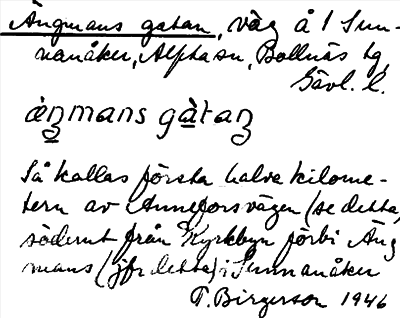 Ängmans gatan, väg å 1 Sun-
nanåker, Alphasn, Bollnäs tg,
Gävl. l.
ä̀n̠mans gàtan̠
Så kallas första halvkilome-
tern av Anneforsvägen (se detta)
söderut från Kyrkbyn förbi Äng
mans (jfr detta) i Sunnanåker
T. Birgerson 1946